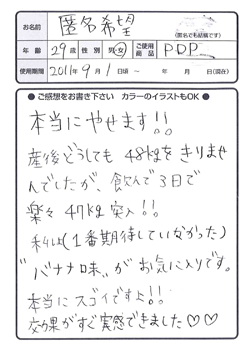 お名前 匿名希望
(匿名でも結構です)
年齢 29歳 性別 男・女 ご使用商品 PDP
使用期間 2011年9月1日頃 ~ 年 月 日(現在)
● ご感想をお書き下さい カラーのイラストもOK ●
本当にやせます!!
産後どうしても48kgをきりませ
んでしたが、飲んで3日で
楽々47kg突入!!
私は(1番期待していなかった)
"バナナ味"がお気に入りです。
本当にスゴイですよ!!
効果がすぐ実感できました♡♡